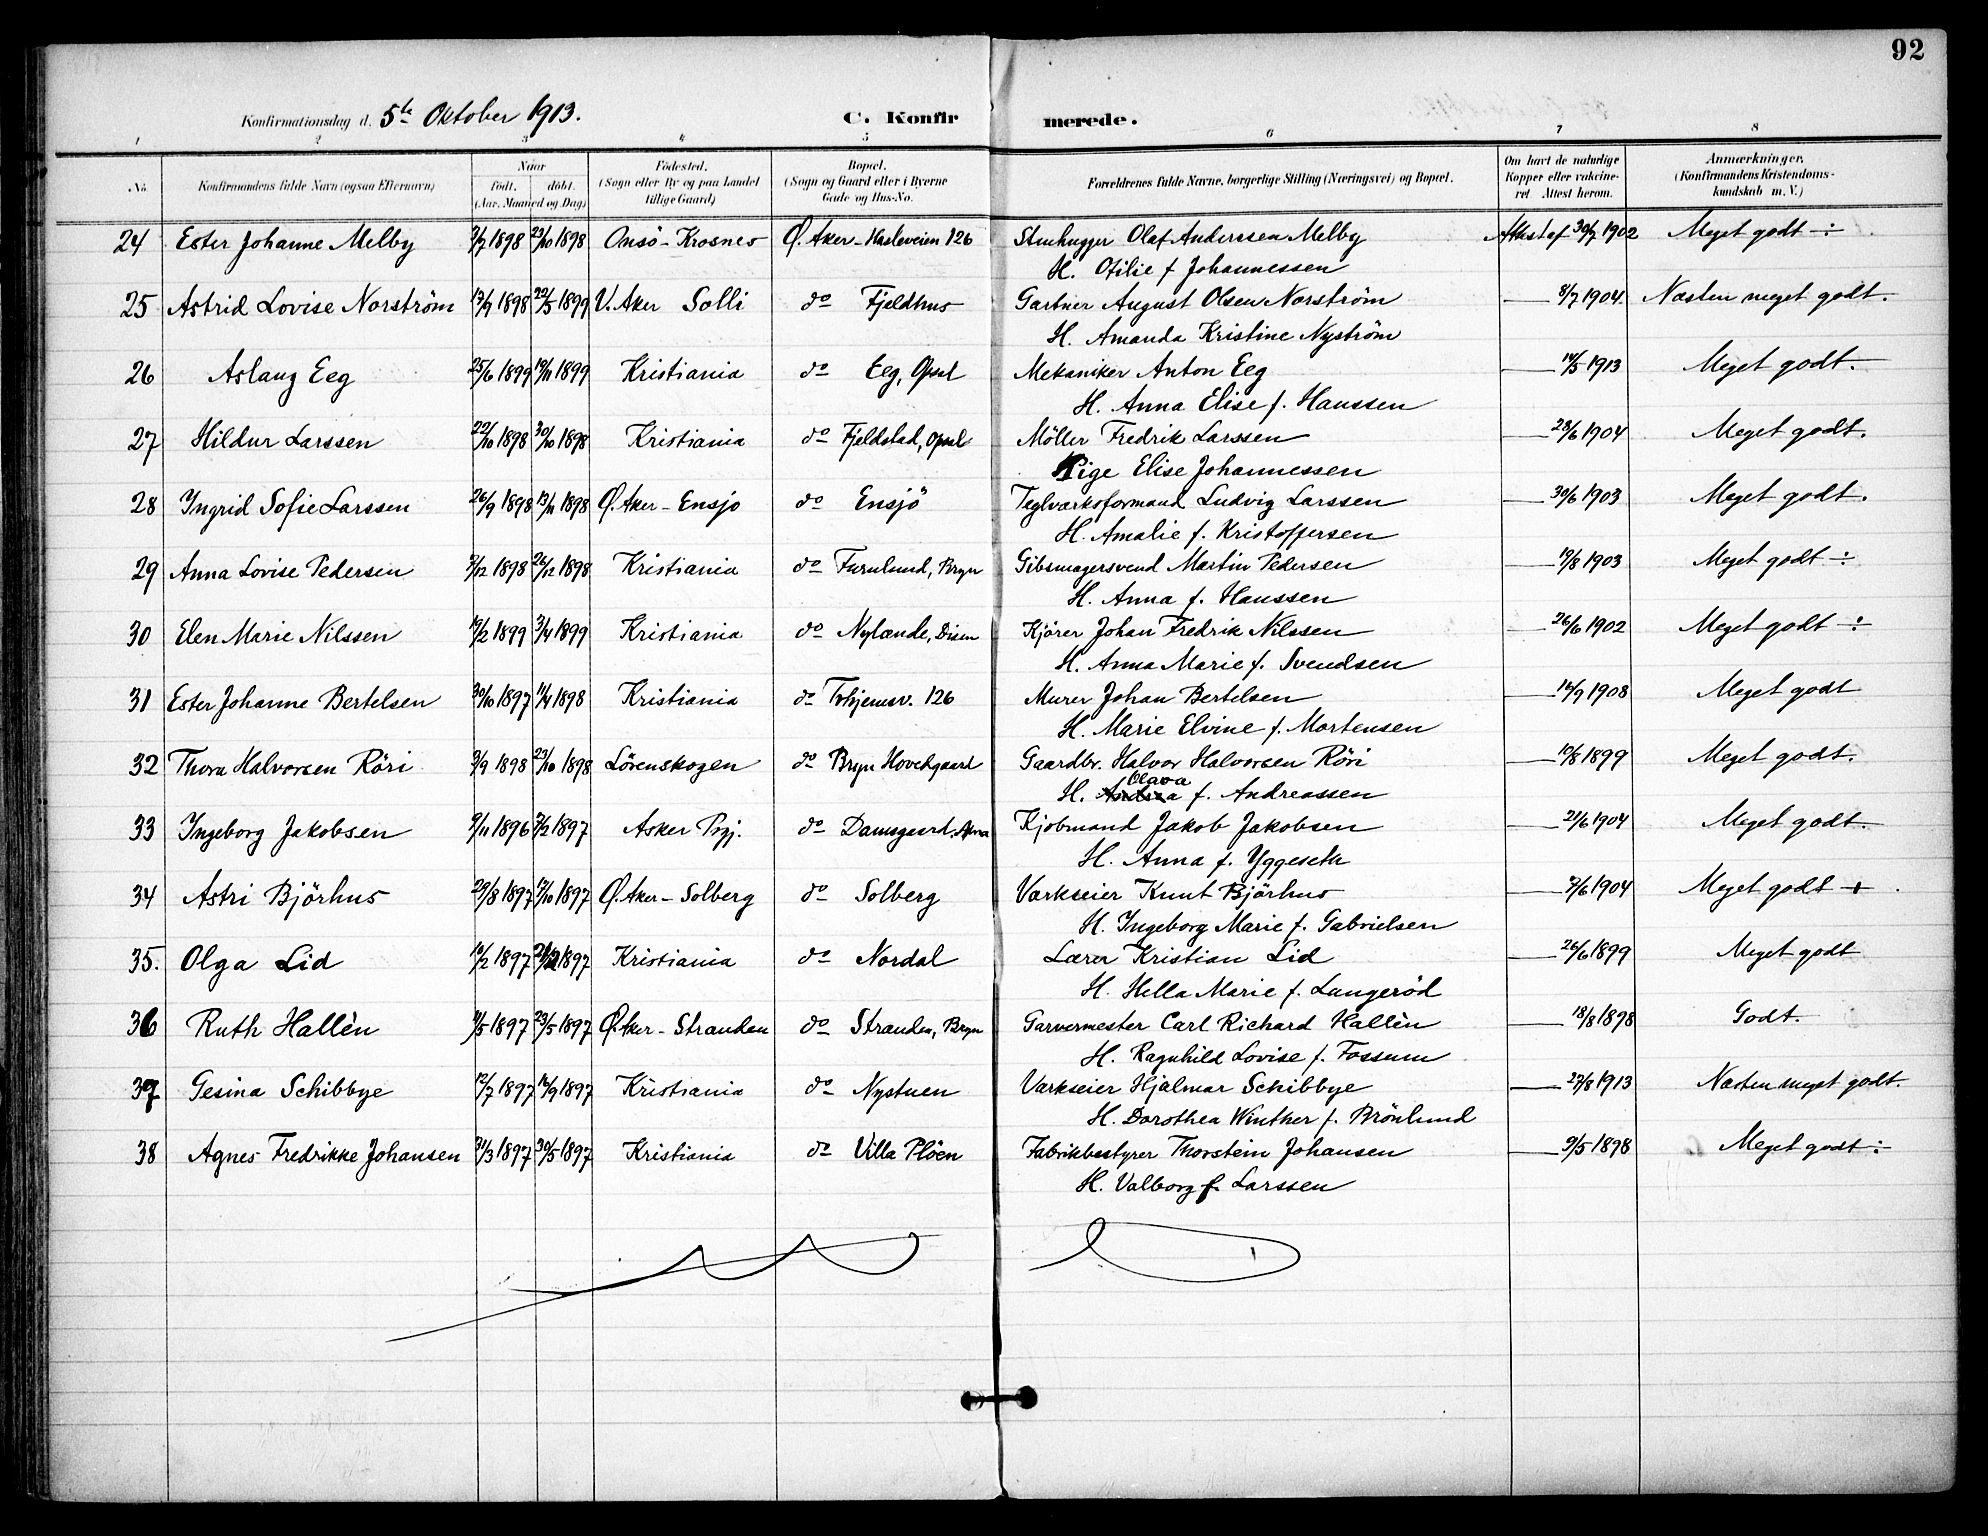 92
Konfirmationsdag d. 5te Oktober 1913. C. Konfirmerede.
1 2 3 4 5 6 7 8
No. Konfirmandens fulde Navn (ogsaa Efternavn) Naar født. døbt. (Aar, Maaned og Dag) Fødested. (Sogn eller By og paa Landet tillige Gaard) Bopæl. (Sogn og Gaard eller i Byerne Gade og Hus-No. Forældrenes fulde Navne, borgerlige Stilling (Næringsvei) og Bopæl. Om havt de naturlige Kopper eller vakcineret Attest herom. Anmærkninger. (Konfirmandens Kristendomskundskab m. V.)
24 Ester Johanne Melby 2/7 1898 23/10 1898 Onsö - Krosnes Ø. Aker - Hasleveien 126 Stenhugger Olaf Anderssen Melby Attest af 30/7 1902 Meget godt ÷
H. Otilie f Johannessen
25 Astrid Lovise Norström 13/9 1898 22/5 1899 V. Aker Solli do Fjeldhus Gartner August Olsen Norström — 8/7 1904. Næsten meget godt.
H. Amanda Kristine Nyström
26 Aslaug Eeg 25/6 1899 19/11 1899 Kristiania do Eeg, Opsal Mekaniker Anton Eeg — 14/5 1913 Meget godt.
H. Anna Elise f. Hanssen
27 Hildur Larssen 22/10 1898 30/10 1898 Kristiania do Fjeldstad, Opsal Möller Fredrik Larssen — 28/6 1904 Meget godt.
Pige Elise Johannessen
28 Ingrid Sofie Larssen 26/9 1898 13/11 1898 Ø. Aker - Ensjo do Ensjö Teglværksformand Ludvig Larssen — 30/6 1903 Meget godt.
H. Amalie f. Kristoffersen
29 Anna Lovise Pedersen 2/12 1898 26/12 1898 Kristiania do Furulund, Bryn Gibsmagersvend Martin Pedersen — 19/8 1903 Meget godt ÷
H. Anna f. Hanssen
30 Elen Marie Nilssen 19/2 1899 3/4 1899 Kristiania do Nylænde, Disen Kjörer Johan Fredrik Nilssen — 26/6 1902 Meget godt ÷
H. Anna Marie f. Svendsen
31 Ester Johanne Bertelsen 30/10 1897 11/4 1898 Kristiania do 126 Murer Johan Bertelsen — 14/9 1908 Meget godt
H. Marie Elvine f. Mortensen
32 Thora Halvorsen Röri 3/9 1898 23/10 1898 Lörenskogen do Bryn Hovedgaard Gaardbr. Halvor Halvorsen Röri — 10/8 1899 Meget godt.
H. Olava f. Andreassen
33 Ingeborg Jakobsen 9/11 1896 7/2 1897 Asker Pgj. do Damsgaard, Alna Kjøbmand Jakob Jakobsen — 21/6 1904 Meget godt.
H. Anna f. Yggeseth
34 Astri Björhus 29/8 1897 17/10 1897 Ø. Aker - Solberg do Solberg Værkseier Knut Björhus — 7/6 1904 Meget godt +
H. Ingeborg Marie f. Gabrielsen
35. Olga Lid 10/2 1897 1897 Kristiania do Nordal Lærer Kristian Lid — 26/6 1899 Meget godt
H. Hella Marie f. Langeröd
36 Ruth Hallèn 11/5 1897 23/5 1897 Ø. Aker - Stranden do Stranden, Bryn Garvermester Carl Richard Hallèn — 18/8 1898 Godt.
H. Ragnhild Lovise f. Fossum
37 Gesina Schibbye 12/7 1897 12/9 1897 Kristiania do Nystuen Værkseier Hjalmar Schibbye — 27/8 1913 Næsten meget godt.
H. Dorothea Winther f. Brönlund
38 Agnes Fredrikke Johansen 31/3 1897 30/5 1897 Kristiania do Villa Plöen Fabrikbestyrer Thorstein Johansen — 9/5 1898 Meget godt ÷
H. Valborg f. Larssen